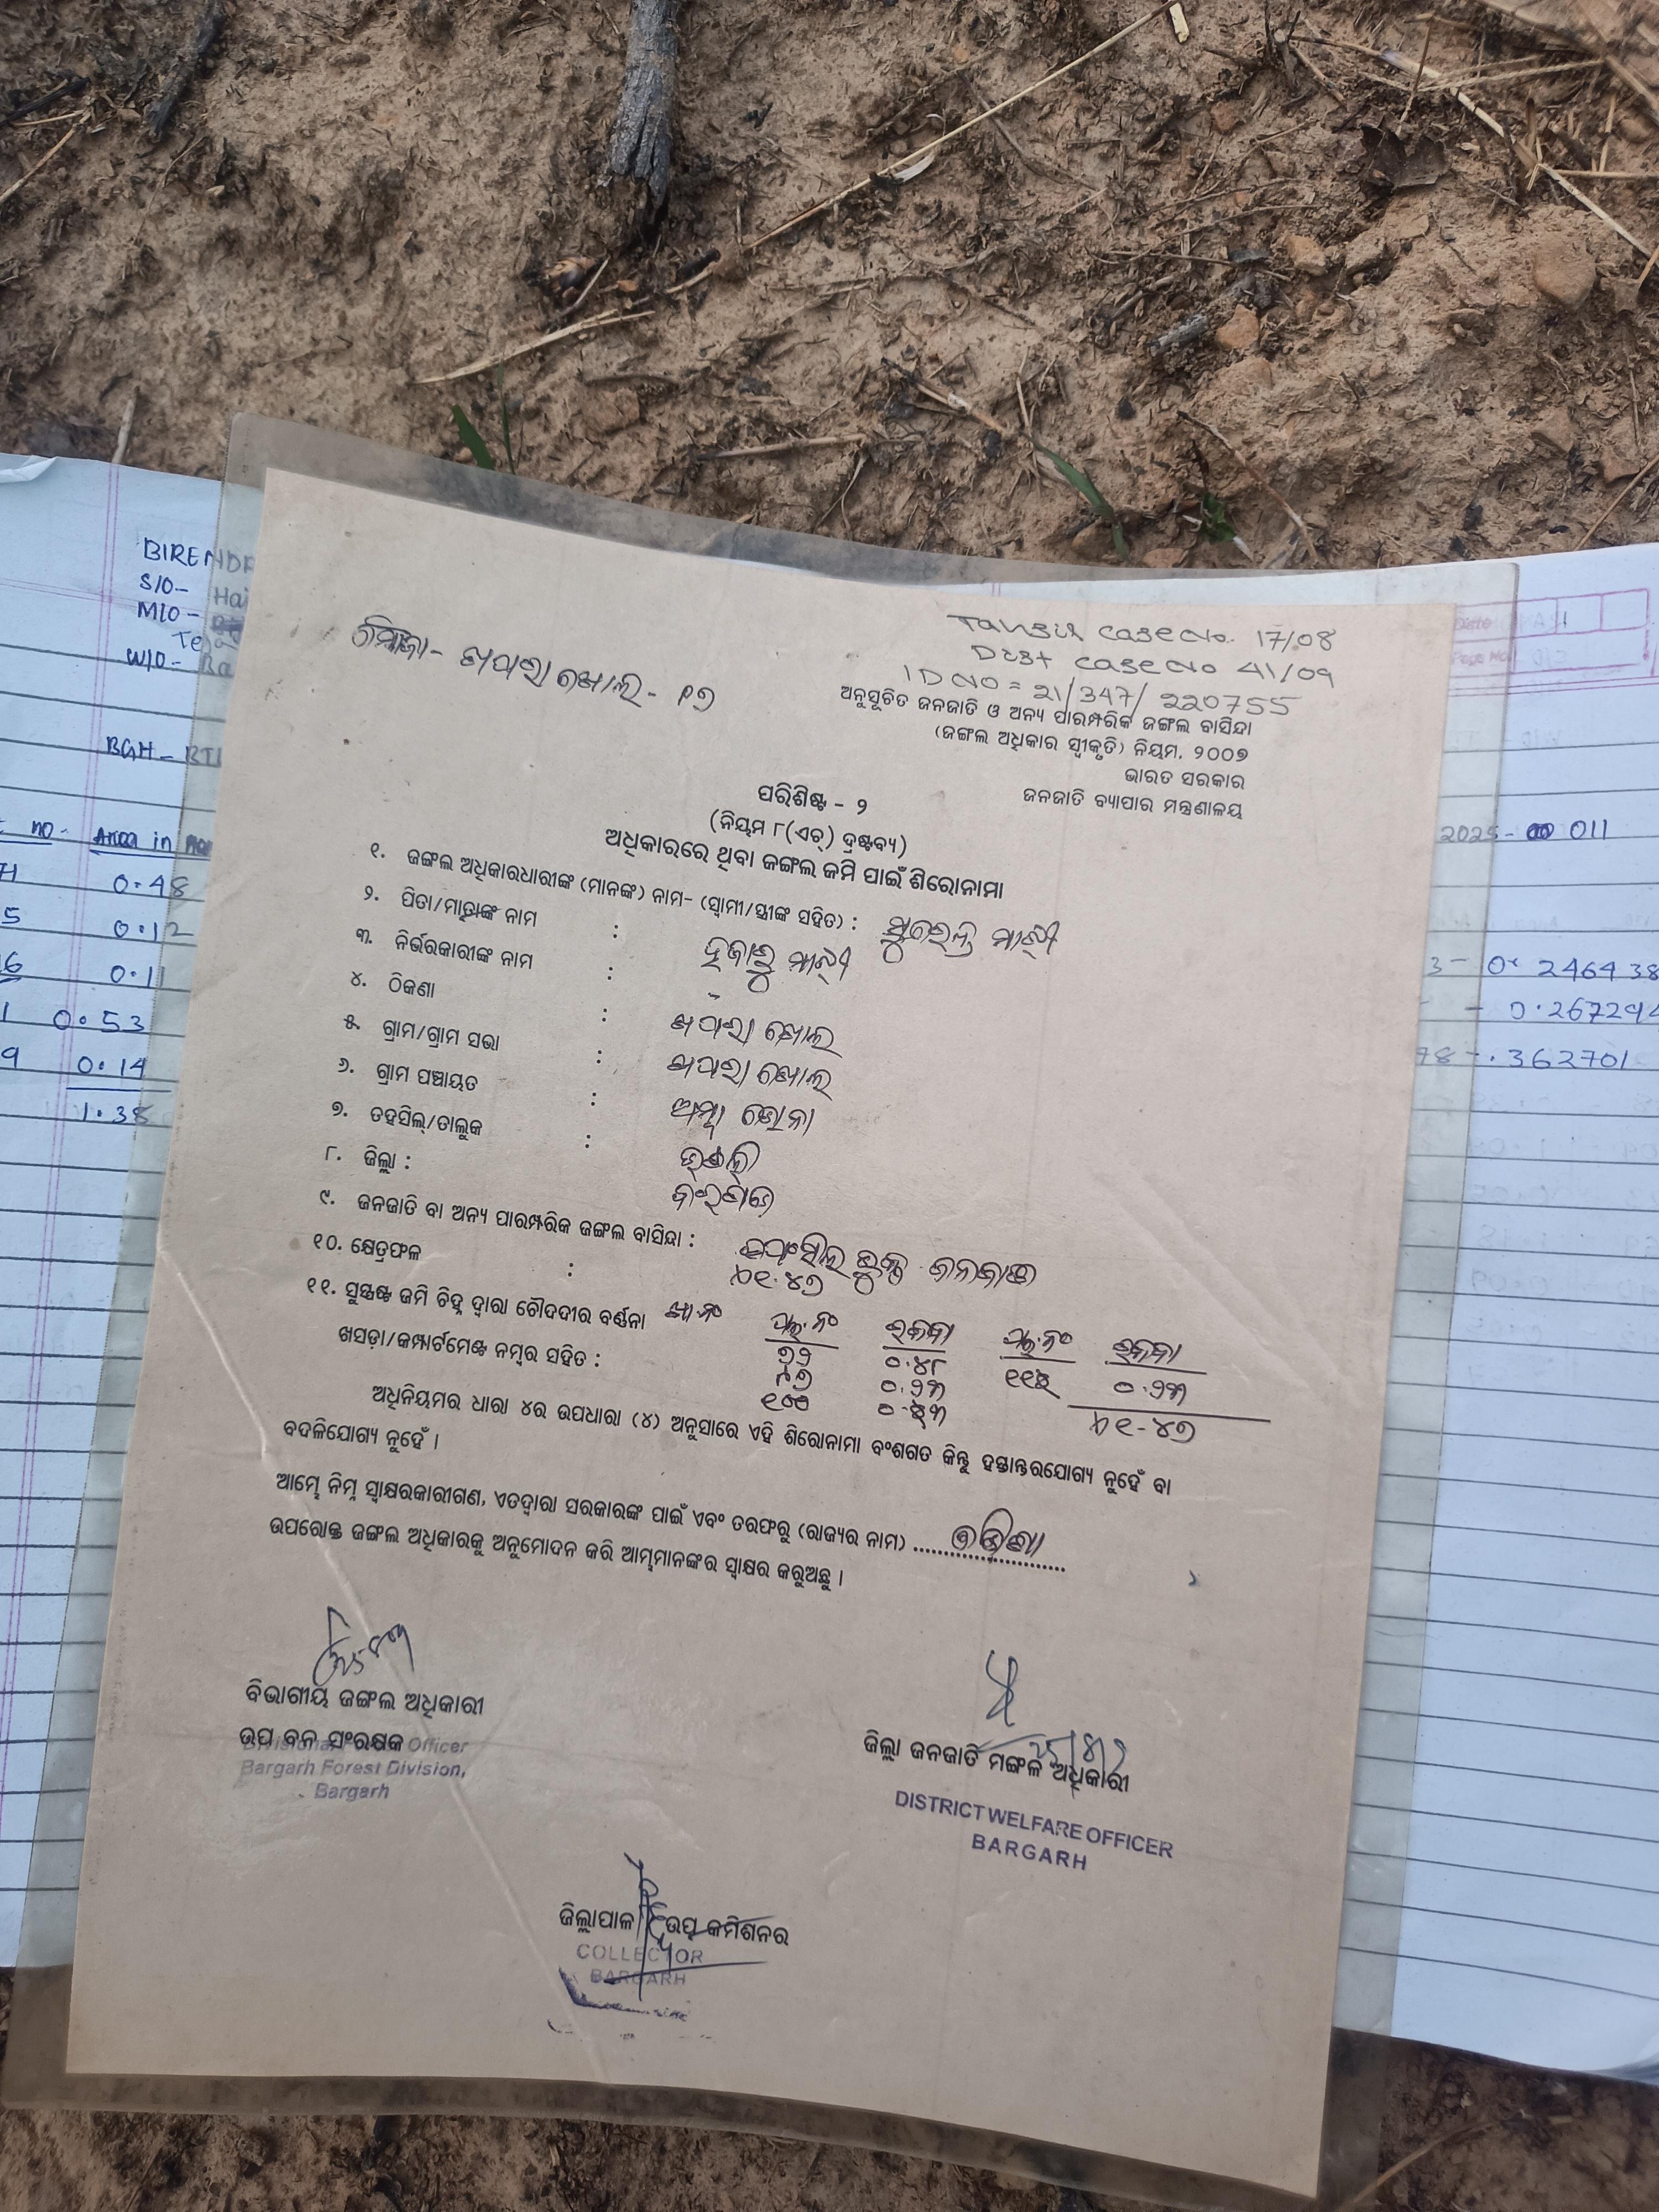 BIRENDR
S/O- Hai
M/O-
W/O- Ba
BGH- BTL
no. Area in
0.48
5 0.12
16 0.11
1 0.53
9 0.14
1.38
ମୌଜା- ଖପରା ଖୋଲ- ୧୭
Tahsil Case No. 17/08
Dist case No 41/09
ID NO = 21/347/220755
ଅନୁସୂଚିତ ଜନଜାତି ଓ ଅନ୍ୟ ପାରମ୍ପରିକ ଜଙ୍ଗଲ ବାସିନ୍ଦା
(ଜଙ୍ଗଲ ଅଧିକାର ସ୍ୱୀକୃତି) ନିୟମ, ୨୦୦୭
ଭାରତ ସରକାର
ଜନଜାତି ବ୍ୟାପାର ମନ୍ତ୍ରଣାଳୟ
ପରିଶିଷ୍ଟ - ୨
(ନିୟମ ୮(ଏଚ୍) ଦ୍ରଷ୍ଟବ୍ୟ)
ଅଧିକାରରେ ଥିବା ଜଙ୍ଗଲ ଜମି ପାଇଁ ଶିରୋନାମା
୧. ଜଙ୍ଗଲ ଅଧିକାରଧାରୀଙ୍କ (ମାନଙ୍କ) ନାମ- (ସ୍ୱାମୀ/ସ୍ତ୍ରୀଙ୍କ ସହିତ) : ସୁରେନ୍ଦ୍ର ମାଝୀ
୨. ପିତା/ମାତାଙ୍କ ନାମ : ହଜାରୁ ମାଝୀ
୩. ନିର୍ଭରକାରୀଙ୍କ ନାମ : -
୪. ଠିକଣା : ଖପରା ଖୋଲ
୫. ଗ୍ରାମ/ଗ୍ରାମ ସଭା : ଖପରା ଖୋଲ
୬. ଗ୍ରାମ ପଞ୍ଚାୟତ : ଅମ୍ବା ଡୋଲା
୭. ତହସିଲ୍/ତାଲୁକ :
୮. ଜିଲ୍ଲା : ବରଗଡ
୯. ଜନଜାତି ବା ଅନ୍ୟ ପାରମ୍ପରିକ ଜଙ୍ଗଲ ବାସିନ୍ଦା : ଜନଜାତି
୧୦. କ୍ଷେତ୍ରଫଳ : ୧.୪୭
୧୧. ସୁସ୍ପଷ୍ଟ ଜମି ଚିହ୍ନ ଦ୍ୱାରା ଚୌଦଦୀର ବର୍ଣ୍ଣନା ଖା.ନଂ ପ୍ଲ.ନଂ ରକବା ପ୍ଲ.ନଂ ରକବା
ଖସଡ଼ା/କମ୍ପାର୍ଟମେଣ୍ଟ ନମ୍ବର ସହିତ : ୭୨ ୦.୪୮ ୦.୨୩
୦.୨୩
୧.୪୭
ଅଧିନିୟମର ଧାରା ୪ର ଉପଧାରା (୪) ଅନୁସାରେ ଏହି ଶିରୋନାମା ବଂଶଗତ କିନ୍ତୁ ହସ୍ତାନ୍ତରଯୋଗ୍ୟ ନୁହେଁ ବା
ବଦଳିଯୋଗ୍ୟ ନୁହେଁ ।
ଆମ୍ଭେ ନିମ୍ନ ସ୍ୱାକ୍ଷରକାରୀଗଣ, ଏତଦ୍ୱାରା ସରକାରଙ୍କ ପାଇଁ ଏବଂ ତରଫରୁ (ରାଜ୍ୟର ନାମ) ଓଡ଼ିଶା
ଉପରୋକ୍ତ ଜଙ୍ଗଲ ଅଧିକାରକୁ ଅନୁମୋଦନ କରି ଆମ୍ଭମାନଙ୍କର ସ୍ୱାକ୍ଷର କରୁଅଛୁ ।
ବିଭାଗୀୟ ଜଙ୍ଗଲ ଅଧିକାରୀ
ଉପ ବନ ସଂରକ୍ଷକ
Divisional Forest Officer
Bargarh Forest Division,
Bargarh
ଜିଲ୍ଲା ଜନଜାତି ମଙ୍ଗଳ ଅଧିକାରୀ
DISTRICT WELFARE OFFICER
BARGARH
ଜିଲ୍ଲାପାଳ / ଉପ କମିଶନର
COLLECTOR
BARGARH
Date
Page No
1
2025- 011
3- 0.246438
- 0.267294
78-.362701